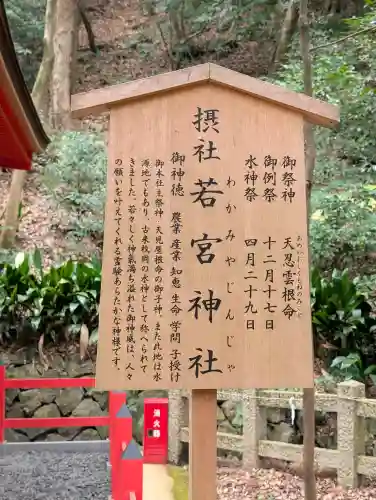 摂社 若宮神社
わかみやじんじゃ
御祭神 天忍雲根命
あめのおしくもねのみこと
御例祭 十二月十七日
水神祭 四月二十九日
御神徳 農業 産業 知恵 生命 学問 子授け
御本社主祭神 天児屋根命の御子神、また此地は水
源地でもあり、古来枚岡の水神として称へられて
きました。若々しく神氣満ち溢れた御神威は、人々
の願いを叶えてくれる霊験あらたかな神様です。
消火器